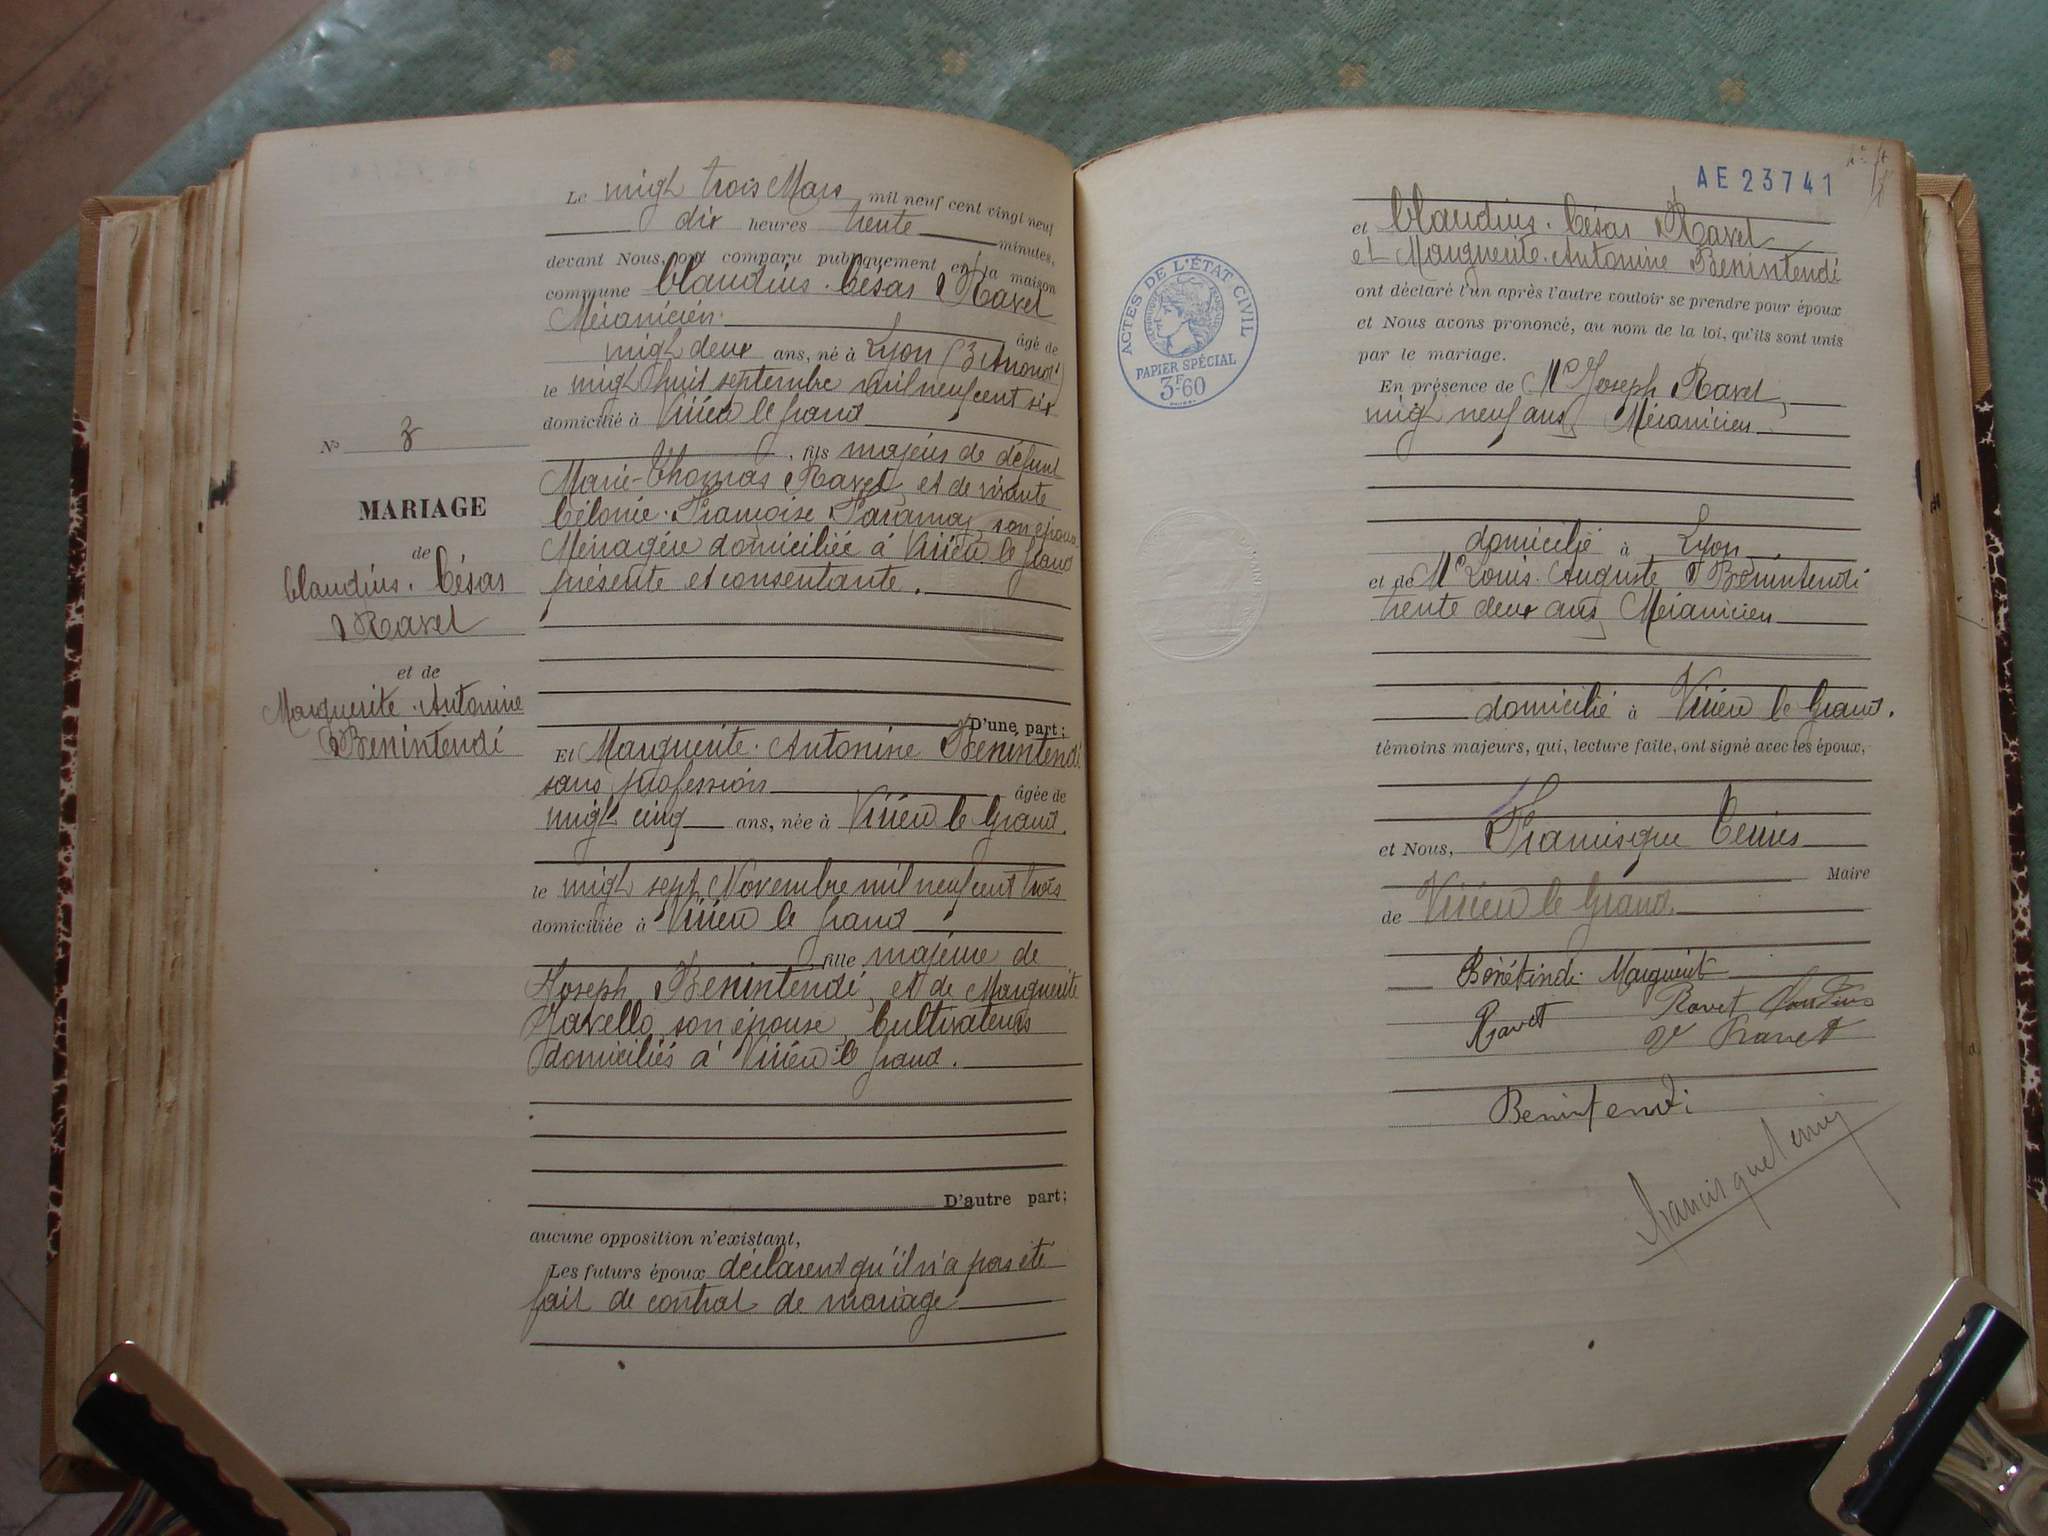 Le vingt trois Mars mil neuf cent vingt neuf
dix heures trente minutes,
devant Nous, ont comparu publiquement en la maison
commune Claudius. César Ravet
Mécanicien. âgé de
vingt deux ans, né à Lyon
le vingt huit septembre mil neuf cent six
domicilié à Virieu le Grand
, fils majeur de défunt
Marie-Thomas Ravet, et de vivante
Françoise son épouse
Ménagère domiciliée à Virieu le Grand
présente et consentante.
D'une part;
Et Marguerite. Antonine Benintendi
sans profession âgée de
vingt cinq ans, née à Virieu le Grand,
le vingt sept Novembre mil neuf cent trois
domiciliée à Virieu le Grand
, fille majeure de
Joseph Benintendi, et de Marguerite
Javello son épouse, Cultivateurs
domiciliés à Virieu le Grand.
D'autre part;
aucune opposition n'existant,
Les futurs époux déclarent qu'il n'a pas été
fait de contrat de mariage
No 3
MARIAGE
de
Claudius. César
Ravet
et de
Marguerite. Antonine
Benintendi
AE 23741
et Claudius. César Ravet
et Marguerite. Antonine Benintendi
ont déclaré l'un après l'autre vouloir se prendre pour époux
et Nous avons prononcé, au nom de la loi, qu'ils sont unis
par le mariage.
En présence de Mr Joseph Ravet,
vingt neuf ans, Mécanicien
domicilié à Lyon
et de Mr Louis. Auguste Benintendi
trente deux ans, Mécanicien
domicilié à Virieu le Grand.
témoins majeurs, qui, lecture faite, ont signé avec les époux,
et Nous, Francisque
Maire
de Virieu le Grand.
Bénétindi Marguerite
Ravet Ravet Claudius
Ve Ravet
Benintendi
ACTES DE L'ÉTAT CIVIL
PAPIER SPÉCIAL
3F60